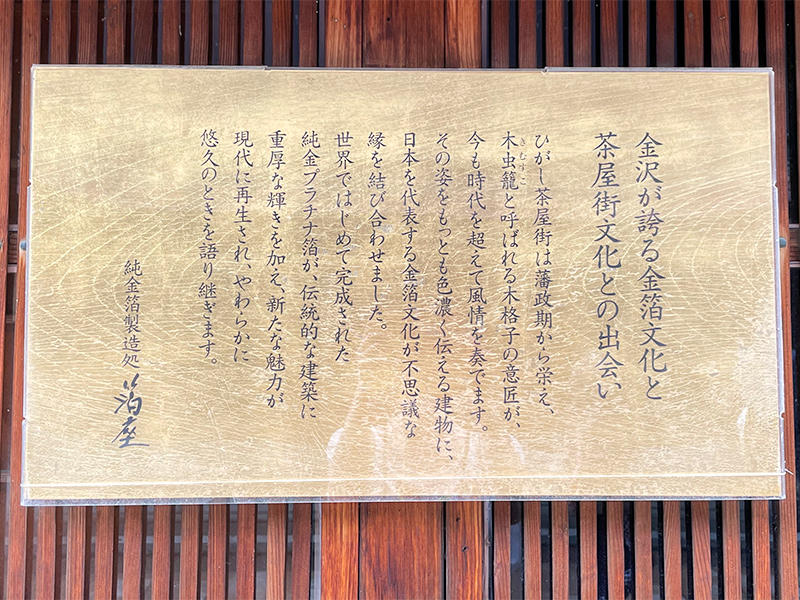 金沢が誇る金箔文化と
茶屋街文化との出会い
ひがし茶屋街は藩政期から栄え、
きむすこ
木虫籠と呼ばれる木格子の意匠が、
今も時代を超えて風情を奏でます。
その姿をもっとも色濃く伝える建物に、
日本を代表する金箔文化が不思議な
縁を結び合わせました。
世界ではじめて完成された
純金プラチナ箔が、伝統的な建築に
重厚な輝きを加え、新たな魅力が
現代に再生され、やわらかに
悠久のときを語り継ぎます。
純金箔製造処
箔座